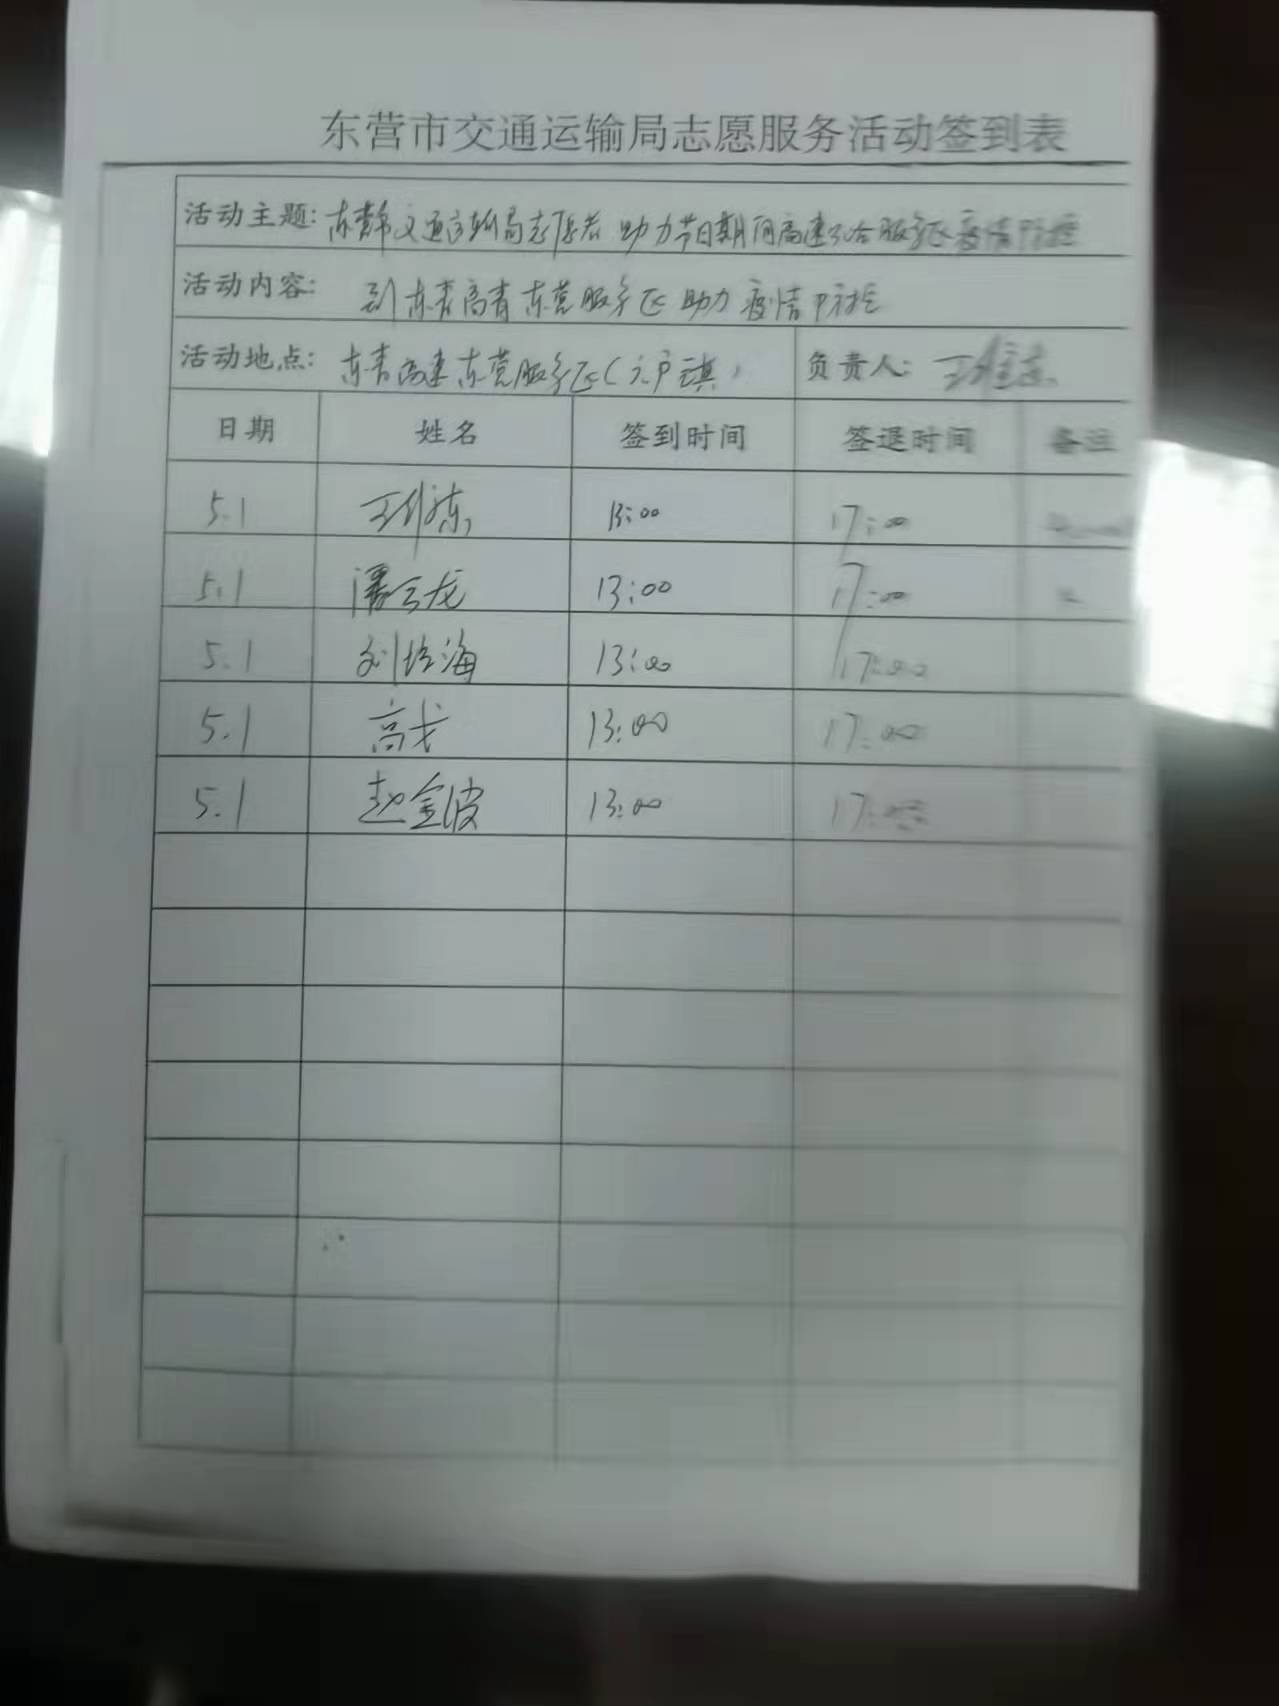 东营市交通运输局志愿服务活动签到表
活动主题: 东营市交通运输局志愿者 助力节日期间高速公路服务区疫情防控
活动内容: 到东青高青东营服务区助力疫情防控
活动地点: 东青高速东营服务区( 负责人:
日期 姓名 签到时间 签退时间 备注
5.1 13:00 17:00
5.1 潘云龙 13:00 17:00
5.1 刘培海 13:00 17:00
5.1 高戈 13:00 17:00
5.1 赵金波 13:00 17:00